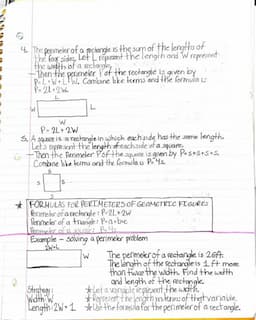 4. The perimeter of a rectangle is the sum of the lengths of
the four sides. Let L represent the length and W represent
the width of a rectangle.
- Then the perimeter P of the rectangle is given by
P=L+W+L+W. Combine like terms and the formula is
P=2L+2W.
L
W
L
W
P=2L+2W
5. A square is a rectangle in which each side has the same length.
Let s represent the length of each side of a square.
- Then the Perimeter P of the square is given by P=s+s+s+s.
Combine like terms and the formula is P=4s.
s
s
s
s
* FORMULAS FOR PERIMETERS OF GEOMETRIC FIGURES
Perimeter of a rectangle: P=2L+2W
Perimeter of a triangle: P=a+b+c
Perimeter of a square: P=4s
Example - solving a perimeter problem
2W+1
W
The perimeter of a rectangle is 26ft.
The length of the rectangle is 1 ft more
than twice the width. Find the width
and length of the rectangle.
Strategy:
* Let a variable represent the width.
Width: W
* Represent the length in terms of that variable.
Length: 2W+1
* Use the formula for the perimeter of a rectangle.